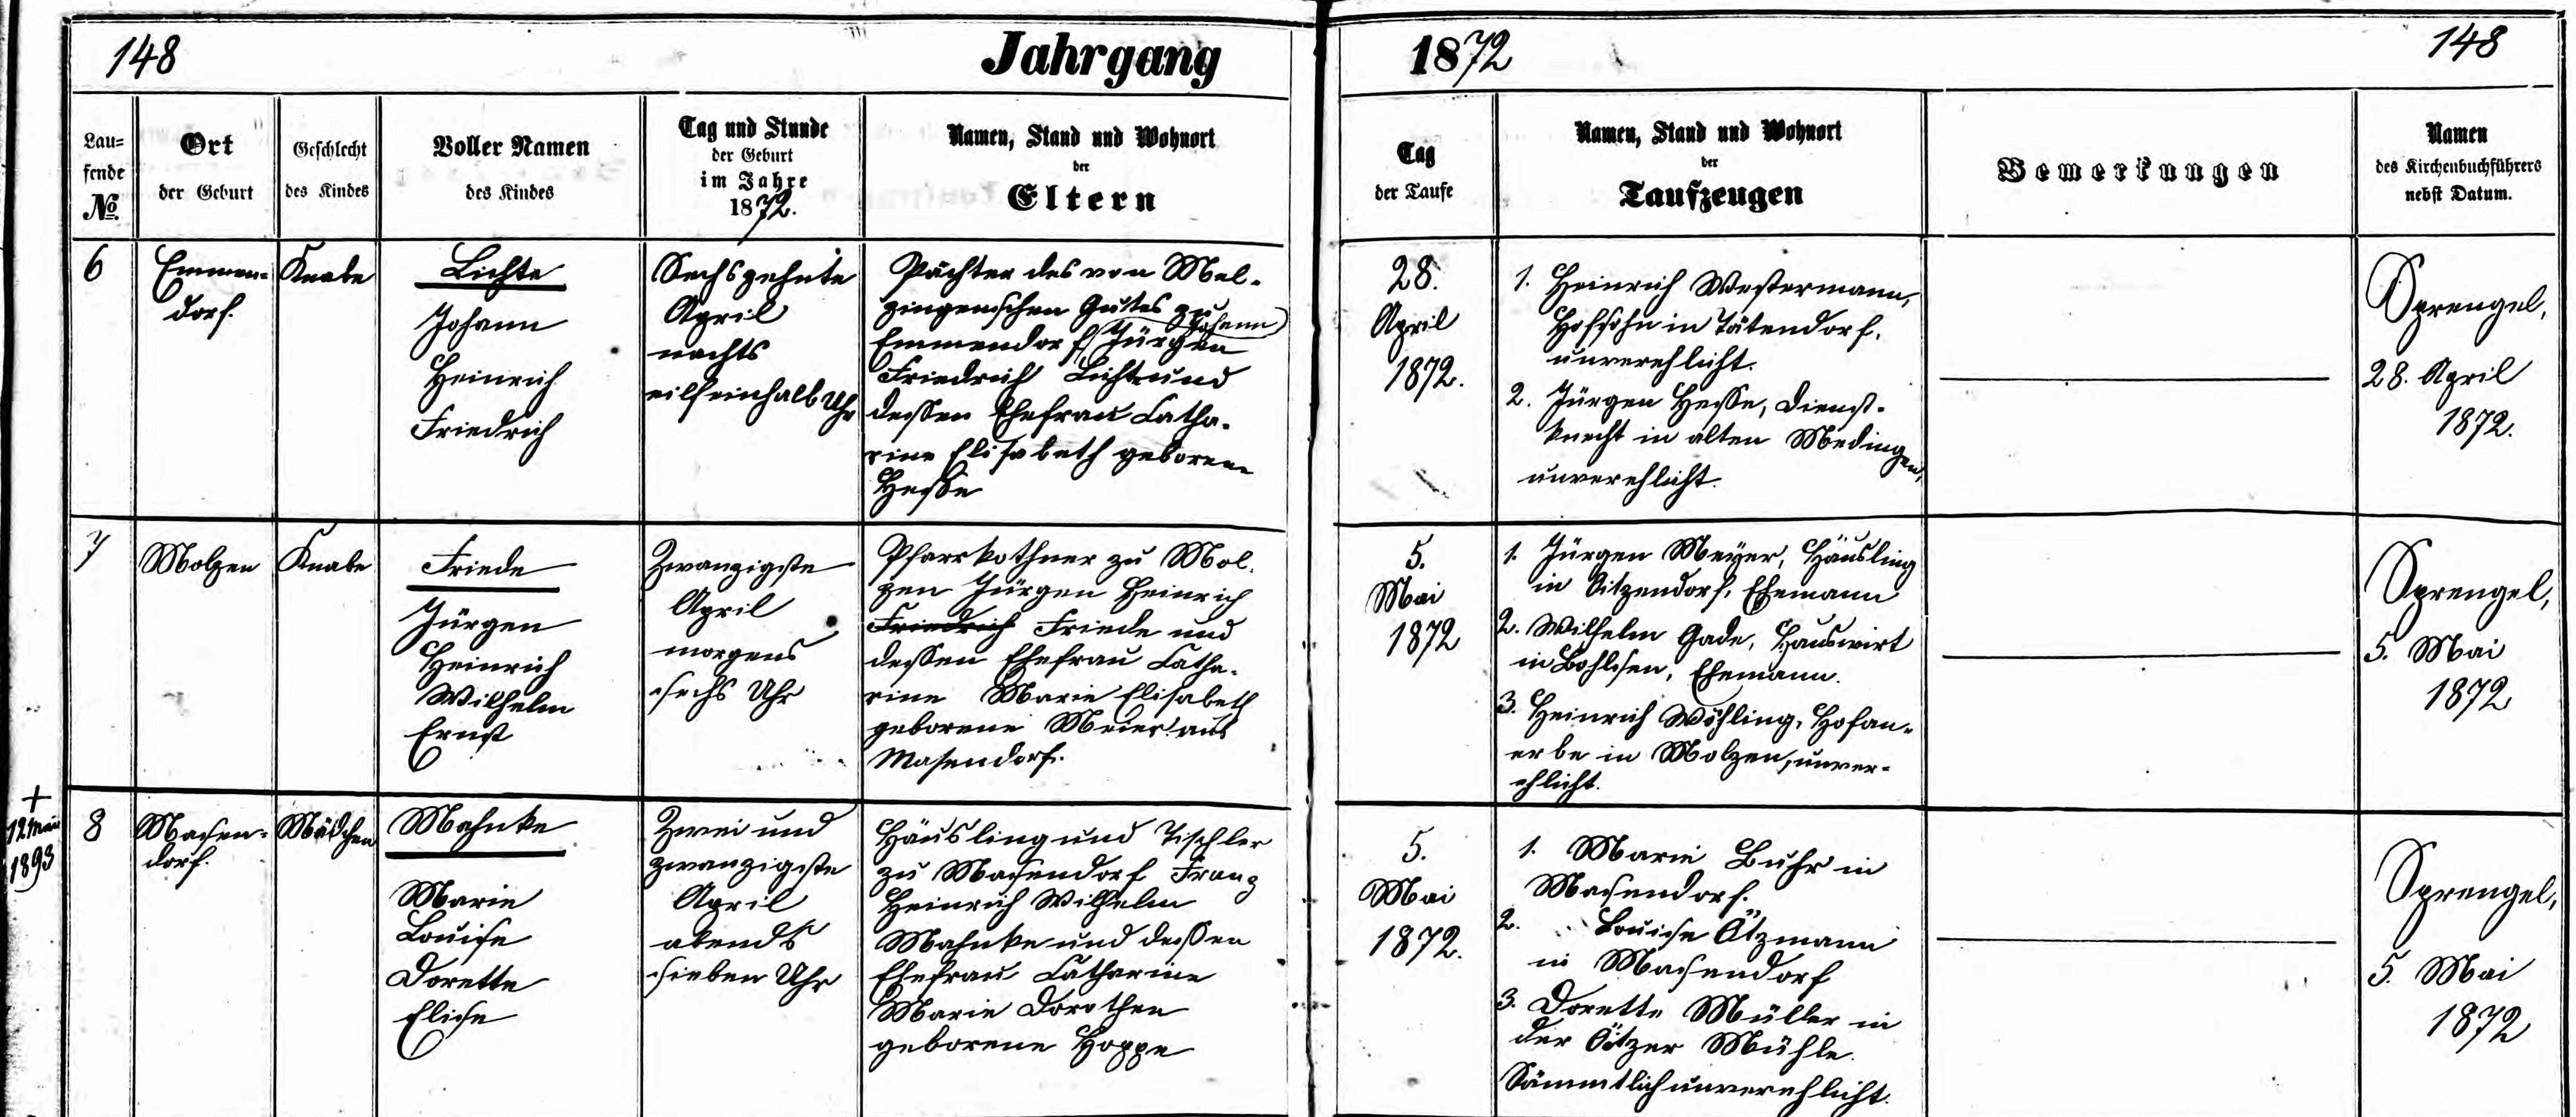 148
Jahrgang
1872
148
Lau=
fende
No.
Ort
der Geburt
Geschlecht
des Kindes
Voller Namen
des Kindes
Tag und Stunde
der Geburt
im Jahre
1872.
Namen, Stand und Wohnort
der
Eltern
Tag
der Taufe
Namen, Stand und Wohnort
der
Taufzeugen
Bemerkungen
Namen
des Kirchenbuchführers
nebst Datum.
6
Emmen=
dorf.
Knabe
Lichte
Johann
Heinrich
Friedrich
Sechszehnte
April
nachts
eilfeinhalb Uhr
Pächter des von Mel-
zingenschen Gutes zu
Johann
Emmendorf Jürgen
Friedrich Lichte und
dessen Ehefrau Catha-
rine Elisabeth geborene
Hesse
28.
April
1872.
1. Heinrich Westermann,
Hofsohn in Tätendorf,
unverehlicht.
2. Jürgen Hesse, Dienst-
knecht in alten Medingen,
unverehlicht.
Sprengel,
28. April
1872.
7
Molzen
Knabe
Friede
Jürgen
Heinrich
Wilhelm
Ernst
Zwanzigste
April
morgens
sechs Uhr
Pfarrkothner zu Mol-
zen Jürgen Heinrich
Friedrich Friede und
dessen Ehefrau Catha-
rine Marie Elisabeth
geborene Meier aus
Masendorf.
5.
Mai
1872
1. Jürgen Meyer, Häusling
in Oitzendorf, Ehemann
2. Wilhelm Gade, Hauswirt
in Bohlsen, Ehemann.
3. Heinrich Wöhling, Hofan-
erbe in Molzen, unver-
ehlicht.
Sprengel,
5. Mai
1872
+
12 Mai
1893
8
Masen=
dorf.
Mädchen
Mahnke
Marie
Louise
Dorette
Elise
Zwei und
zwanzigste
April
abends
sieben Uhr
Häusling und Tischler
zu Masendorf Franz
Heinrich Wilhelm
Mahnke und dessen
Ehefrau Catharine
Marie Dorothee
geborene Hoppe
5.
Mai
1872.
1. Marie Buhr in
Masendorf.
2. Louise Ötzmann
in Masendorf
3. Dorette Müller in
der Ötzer Mühle.
Sämmtlich unverehlicht.
Sprengel,
5. Mai
1872